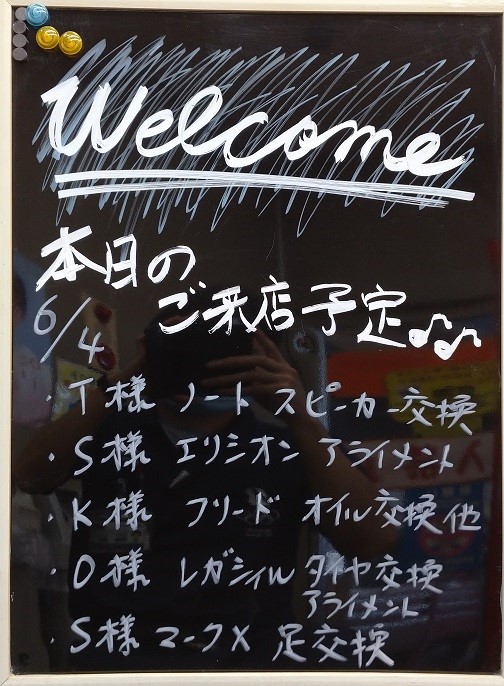 Welcome
本日の
6/4 ご来店予定♫♪
・T様 ノート スピーカー交換
・S様 エリシオン アライメント
・K様 フリード オイル交換他
・O様 レガシィW タイヤ交換
アライメント
・S様 マークX 足交換